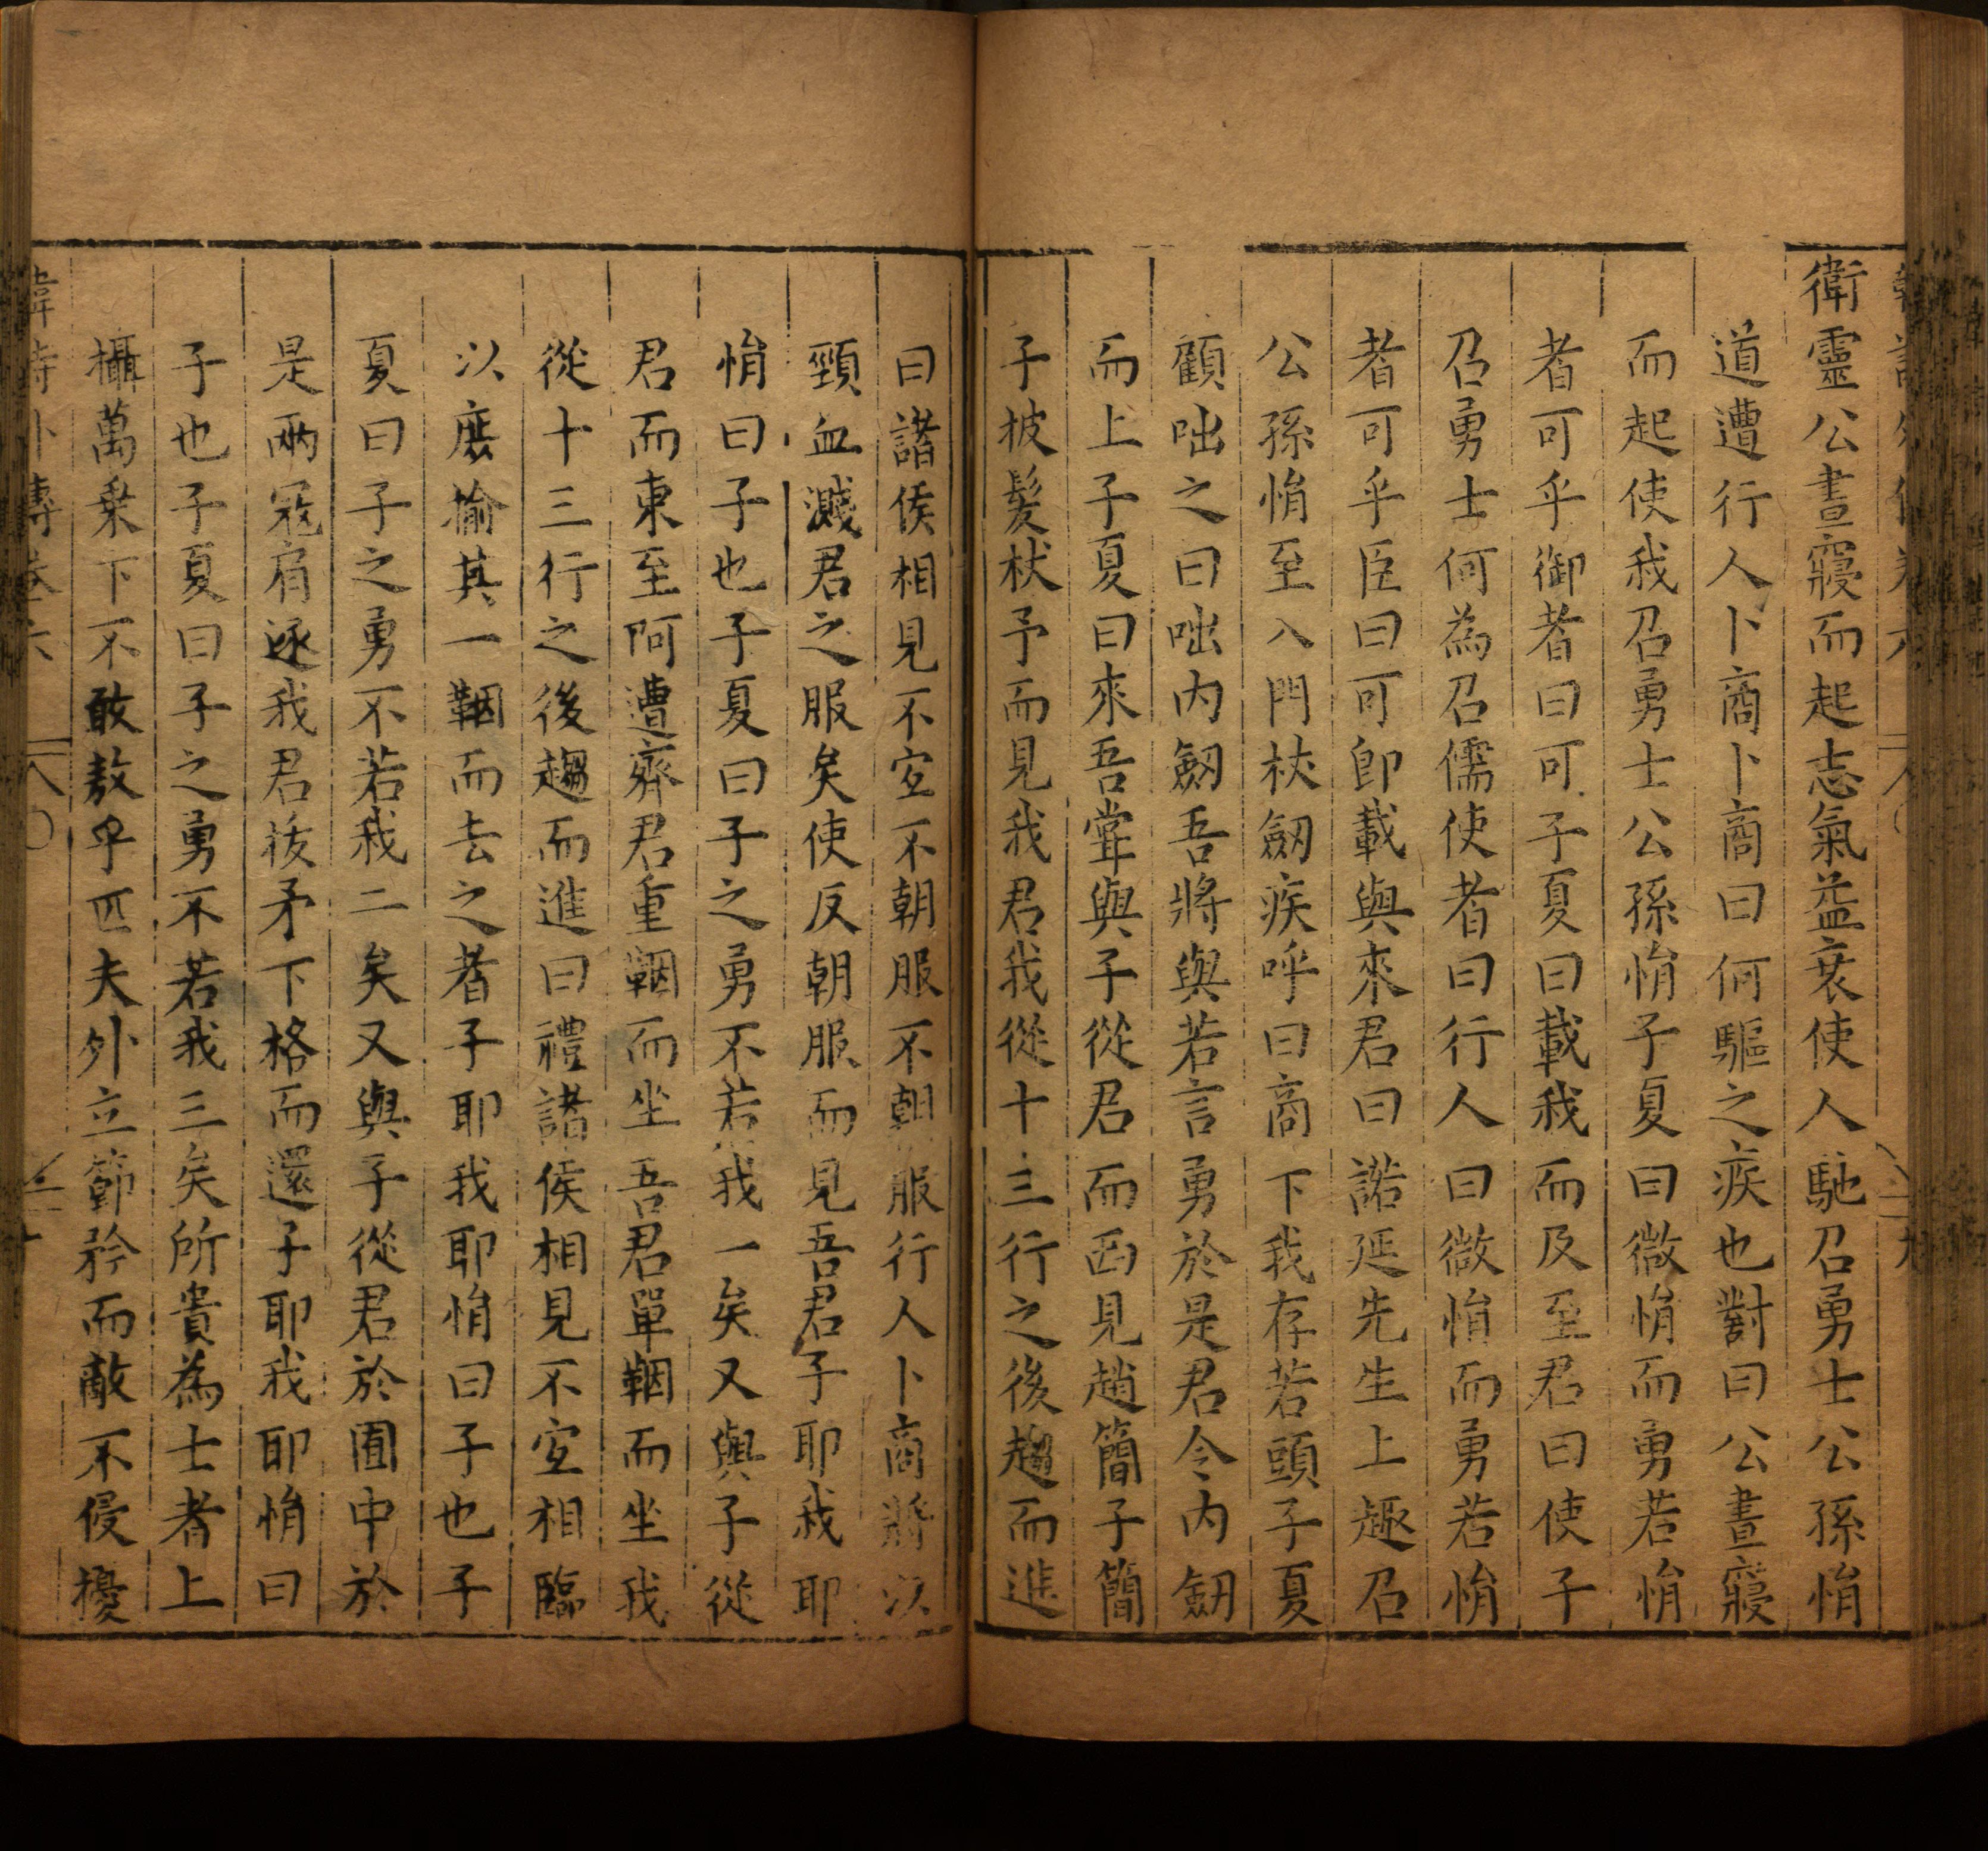 衛靈公晝寢而起志氣益衰使人馳召勇士公孫悁
道遭行人卜商卜商曰何驅之疾也對曰公晝寢
而起使我召勇士公孫悁子夏曰微悁而勇若悁
者可乎御者曰可子夏曰載我而及至君曰使子
召勇士何為召儒使者曰行人曰微悁而勇若悁
者可乎臣曰可即載與來君曰諾延先生上趣召
公孫悁至入門杖劒疾呼曰商下我存若頭子夏
顧咄之曰咄內劒吾將與若言勇於是君令內劒
而上子夏曰來吾甞與子從君而西見趙簡子簡
子披髮杖矛而見我君我從十三行之後趨而進
曰諸侯相見不宜不朝服不朝服行人卜商將以
頸血濺君之服矣使反朝服而見吾君子耶我耶
悁曰子也子夏曰子之勇不若我一矣又與子從
君而東至阿遭齊君重鞇而坐吾君單鞇而坐我
從十三行之後趨而進曰禮諸侯相見不宜相臨
以庶揄其一鞇而去之者子耶我耶悁曰子也子
夏曰子之勇不若我二矣又與子從君於囿中於
是兩寇肩逐我君拔矛下格而還子耶我耶悁曰
子也子夏曰子之勇不若我三矣所貴為士者上
攝萬乗下不敢敖乎匹夫外立節矜而敵不侵擾
韋詩外傳卷六